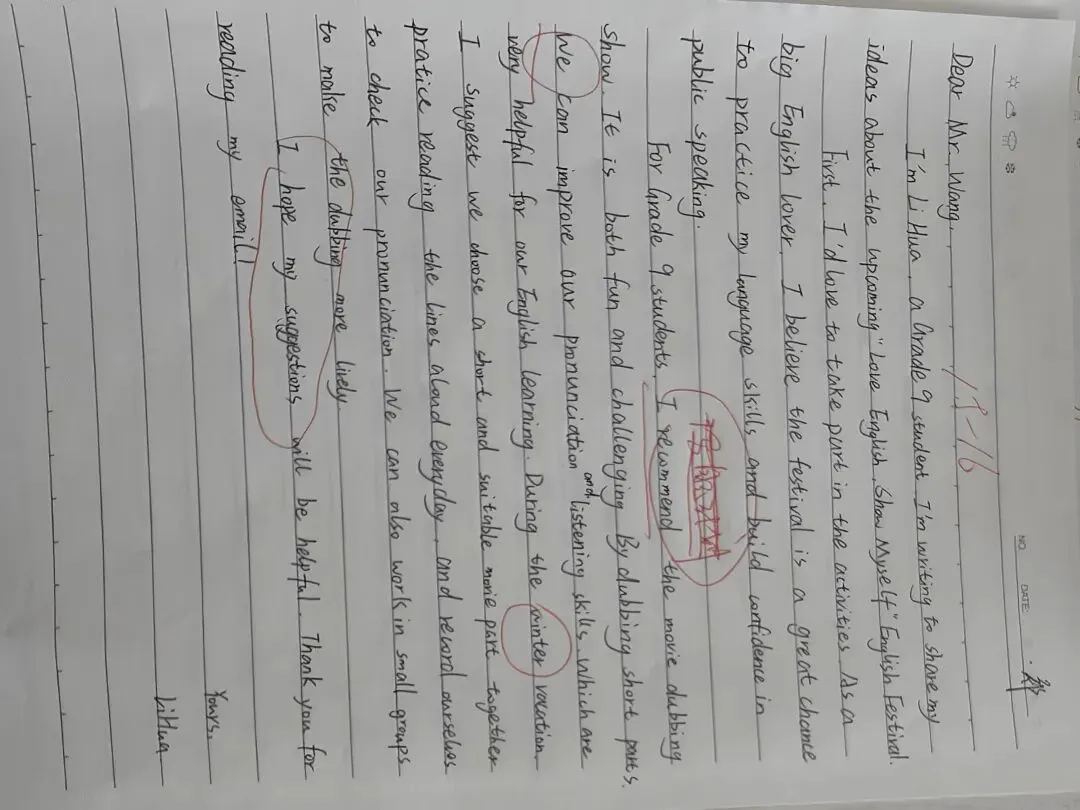 NO.
DATE:
Dear Mr. Wang,
I'm Li Hua, a Grade 9 student. I'm writing to share my
ideas about the upcoming "Love English, Show Myself" English Festival.
First, I'd love to take part in the activities. As a
big English lover, I believe the festival is a great chance
to practice my language skills and build confidence in
public speaking.
For Grade 9 students, I recommend the movie dubbing
show. It is both fun and challenging. By dubbing short parts.
We can improve our pronunciation and listening skills. Which are
very helpful for our English learning. During the winter vacation
I suggest we choose a short and suitable movie part together
pratice reading the lines aloud everyday, and record ourselves
to check our pronunciation. We can also work in small groups
to make the dubbing more lively.
I hope my suggestions will be helpful. Thank you for
reading my email!
Yours.
LiHua